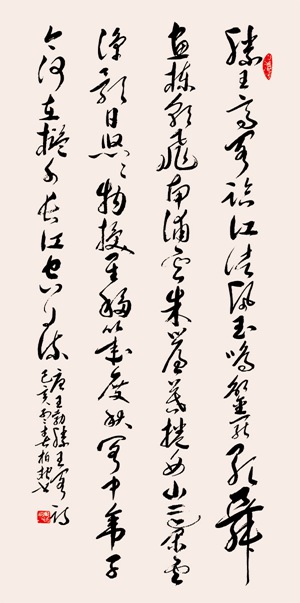 滕王高阁临江渚佩玉鸣鸾罢歌舞
画栋朝飞南浦云朱帘暮捲西山雨闲云
潭影日悠悠物换星移几度秋阁中帝子
今何在槛外长江空自流
唐王勃滕王阁诗
己亥